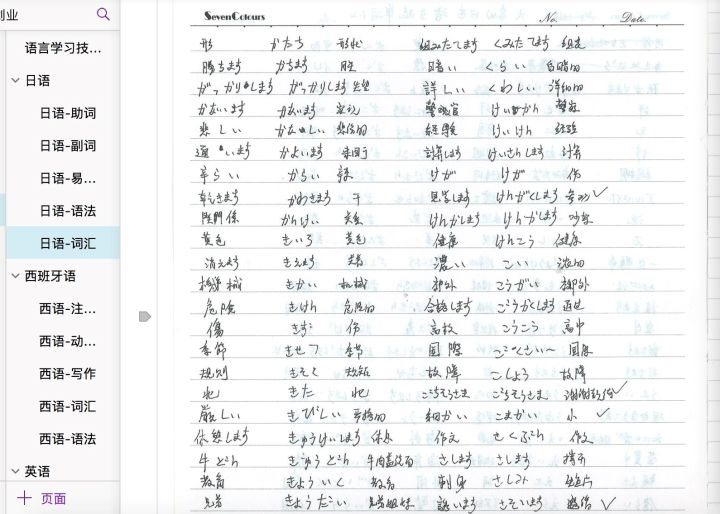 创业
语言学习技...
日语
日语-助词
日语-副词
日语-易...
日语-语法
日语-词汇
西班牙语
西语-注...
西语-动...
西语-写作
西语-词汇
西语-语法
英语
页面
SevenColours No. Date.
形 かたち 形状 組みたてます くみたてます 组装
勝ちます かちます 胜 暗い くらい 昏暗的
がっかりします がっかりします 失望 詳しい くわしい 详细的
かないます かないます 实现 警察官 けいかん 警察
悲しい かなしい 悲伤的 経験 けいけん 经验
通います かよいます 計算します けいさんします 计算
辛い からい 辣 けが けが 伤
乾きます かわきます 干 見学します けんがくします 参观
関係 かんけい 关系 けんかします けんかします 吵架
黄色 きいろ 黄色 健康 けんこう 健康
消えます きえます 濃い こい 浓的
機械 きかい 机械 郊外 こうがい 郊外
危険 きけん 危险的 合格します ごうかくします 通过
傷 きず 伤 高校 こうこう 高中
季節 きせつ 季节 国際 こくさい〜 国际
規則 きそく 规矩 故障 こしょう 故障
北 きた 北 ごちそうさま ごちそうさま 谢谢款待
厳しい きびしい 严格的 細かい こまかい 小
休憩します きゅうけいします 休息 作文 さくぶん 作文
牛どん ぎゅうどん 牛肉盖饭 さします さします
教育 きょういく 教育 刺身 さしみ 生鱼片
兄弟 きょうだい 兄弟姐妹 誘います さそいます 邀请